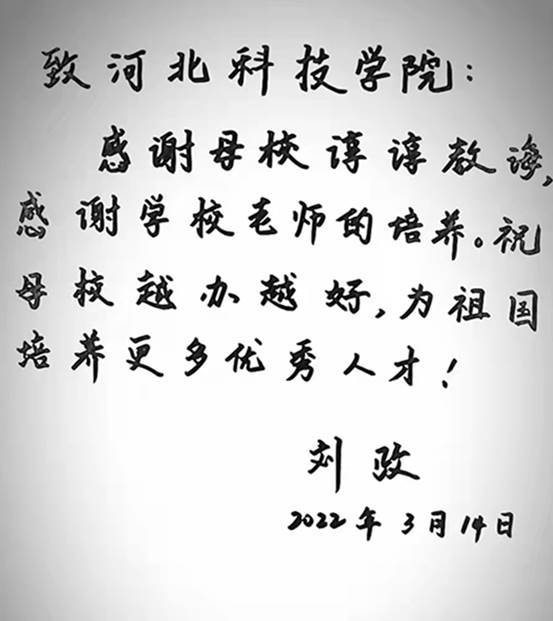 致河北科技学院:
感谢母校谆谆教诲,
感谢学校老师的培养。祝
母校越办越好,为祖国
培养更多优秀人才!
刘政
2022年3月14日